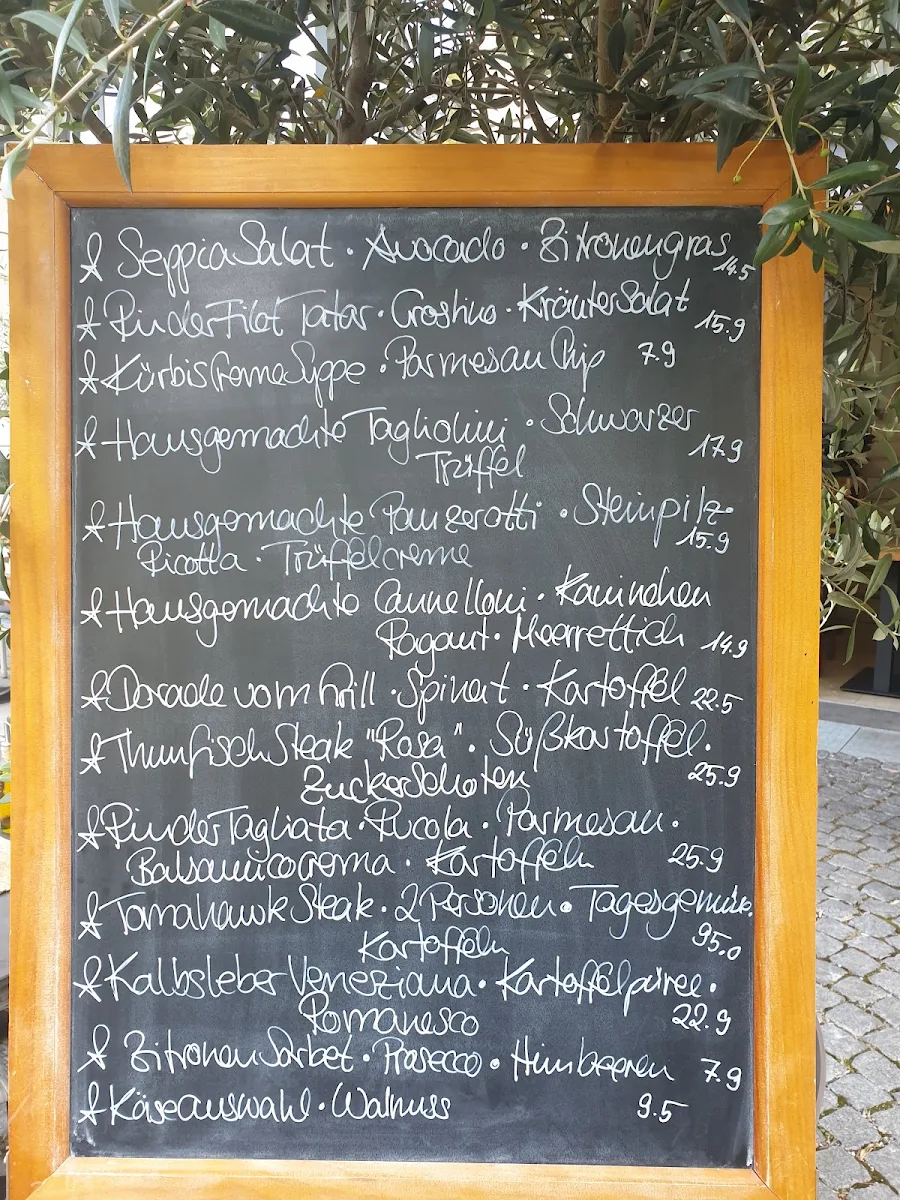 SeppiaSalat · Avocado · Zitronengras 14.5
RinderFilet Tatar · Crostino · KräuterSalat 15.9
KürbisCremeSuppe · Parmesan Chip 7.9
Hausgemachte Tagliolini · Schwarzer 17.9
Trüffel
Hausgemachte Panzerotti · Steinpilz · 15.9
Ricotta · Trüffelcreme
Hausgemachte Cannelloni · Kaninchen
Ragout · Meerrettich 14.9
Dorade vom Grill · Spinat · Kartoffel 22.5
ThunfischSteak "Rosa" · Süßkartoffel · 25.9
ZuckerSchoten
RinderTagliata · Rucola · Parmesan ·
Balsamicocrema · Kartoffeln 25.9
TomahawkSteak · 2 Personen · Tagesgemüse · 95.0
Kartoffeln
Kalbsleber Veneziana · Kartoffelpüree ·
Romanesco 22.9
ZitronenSorbet · Prosecco · Himbeeren 7.9
Käseauswahl · Walnuss 9.5